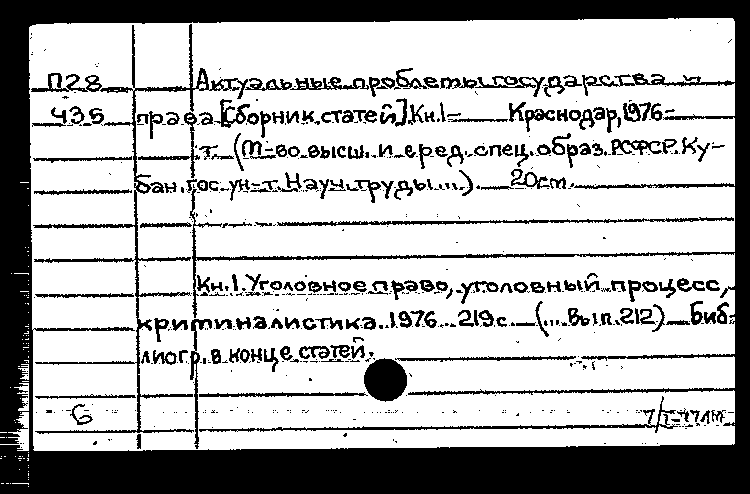 П28 Актуальные проблемы государства и
435 права [Сборник статей] Кн.1- Краснодар, 1976-
т. (М-во высш. и сред. спец. образ. РСФСР. Ку-
бан. гос. ун-т. Науч. труды...). 20cm.
Кн.1. Уголовное право, уголовный процесс,
криминалистика. 1976. 219с (... Вып. 212) Биб-
лиогр. в конце статей.
Б